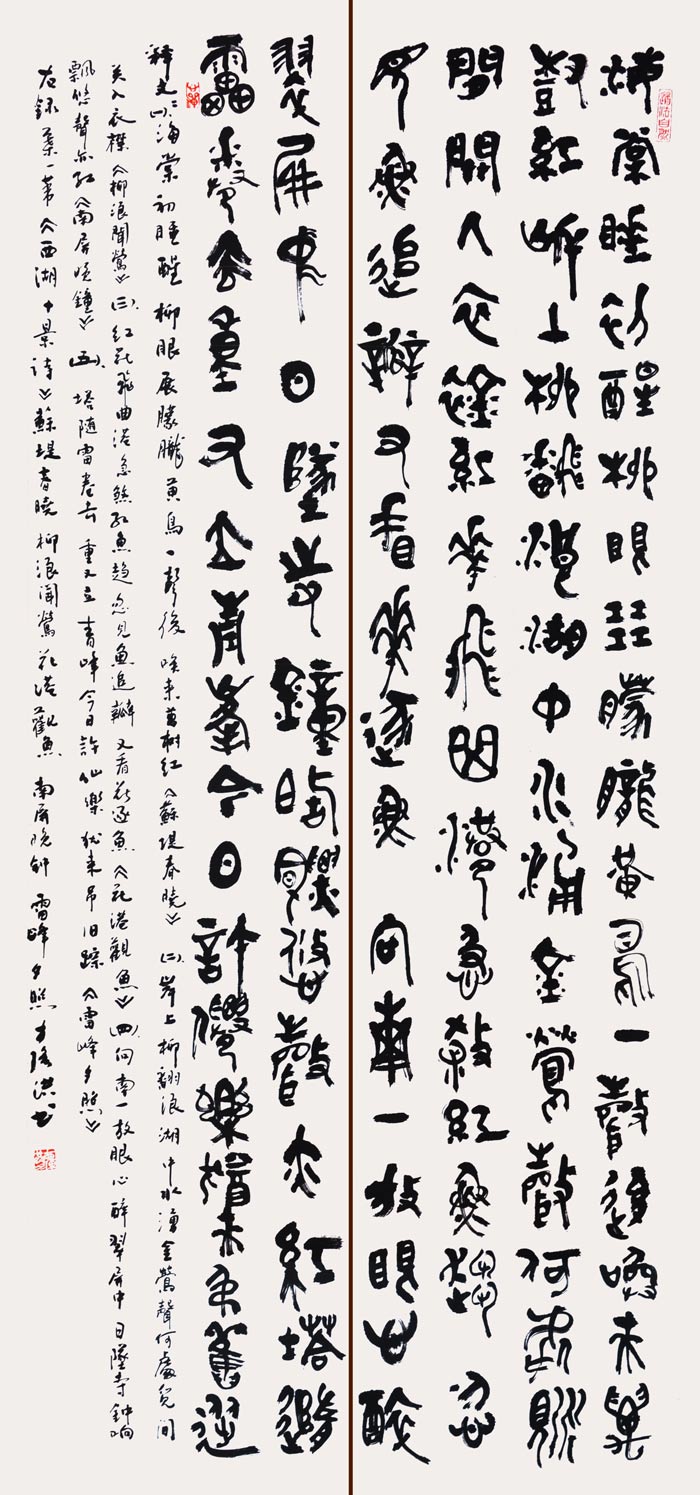 海棠睡初醒柳眼展朦朧黃鳥一聲後喚來萬
樹紅岸上柳翻浪湖中水湧金鶯聲何處覓
間關入衣襟紅花飛曲港急煞紅魚趨忽
見魚追瓣又看花逐魚向南一放眼心醉
翠屏中日墜寺鐘响飄悠聲亦紅塔隨
雷卷去重又立青峯今日許仙樂猶來弔舊蹤
釋文：(一)海棠初睡醒柳眼展朦朧黃鳥一聲後喚來萬樹紅《蘇堤春曉》(二)岸上柳翻浪湖中水湧金鶯聲何處覓间
关入衣襟《柳浪聞鶯》(三)紅花飛曲港急煞紅魚趨忽見魚追瓣又看花逐魚《花港觀魚》(四)向南一放眼心醉翠屏中日墜寺鐘响
飄悠聲亦紅《南屏晚鐘》(五)塔隨雷卷去重又立青峰今日許仙樂猶來吊旧踪《雷峰夕照》
右錄葉一葦《西湖十景詩》蘇堤春曉柳浪聞鶯花港觀魚南屏晚鐘雷峰夕照